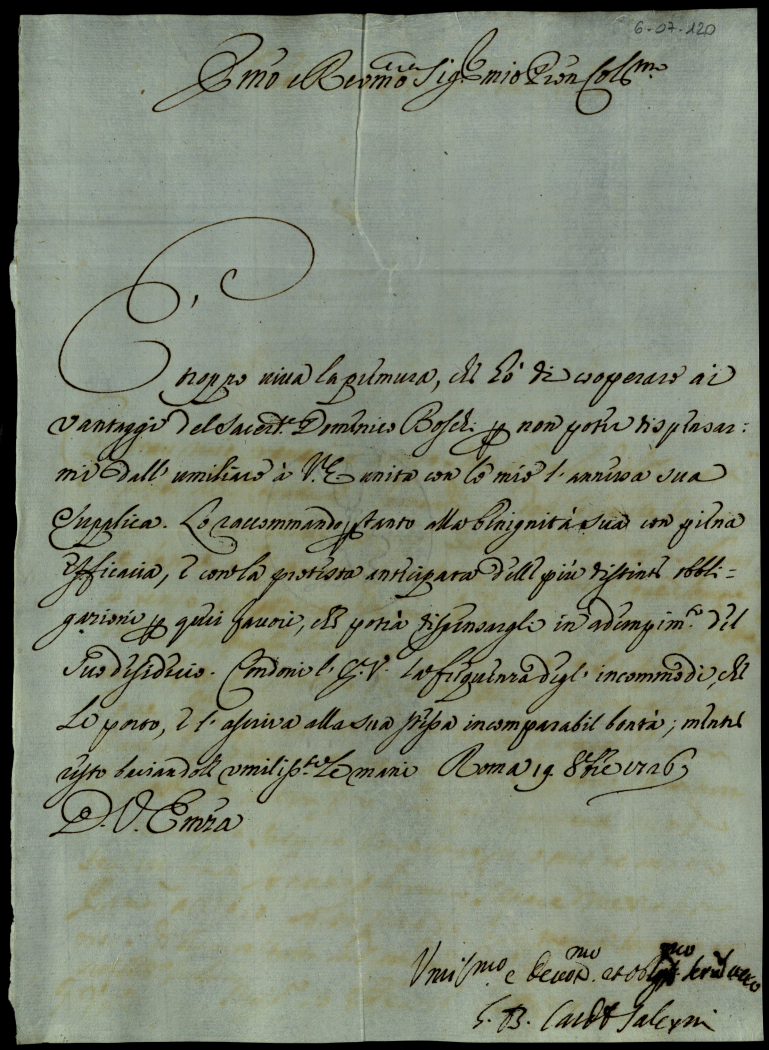 6-07-120
Emo e Revmo Sig.re mio Pron Colmo
E' troppo viva la premura, che hò di cooperare ai
vantaggi del Sacerd.te Domenico Boschi p non poter dispensar:
mi dall' umiliare à V.E unita con le mie l' annessa sua
Supplica. Lo raccommando p tanto alla benignità sua con piena
efficacia, e con la protesta anticipata delle più distinte obbli=
gazioni p quei favori, che potrà dispensargli in adempim.to del
suo desiderio. Condoni l' E.V. la frequenza degl' incommodi, che
Le porto, e l' ascriva alla sua stessa incomparabil bontà; mentre
resto baciandole umiliss.te le mani Roma 19 8bre 1726
D. V. Emza
Umilmo e devot.mo et obblg.mo servid vero
G. B. Card.l Salerni